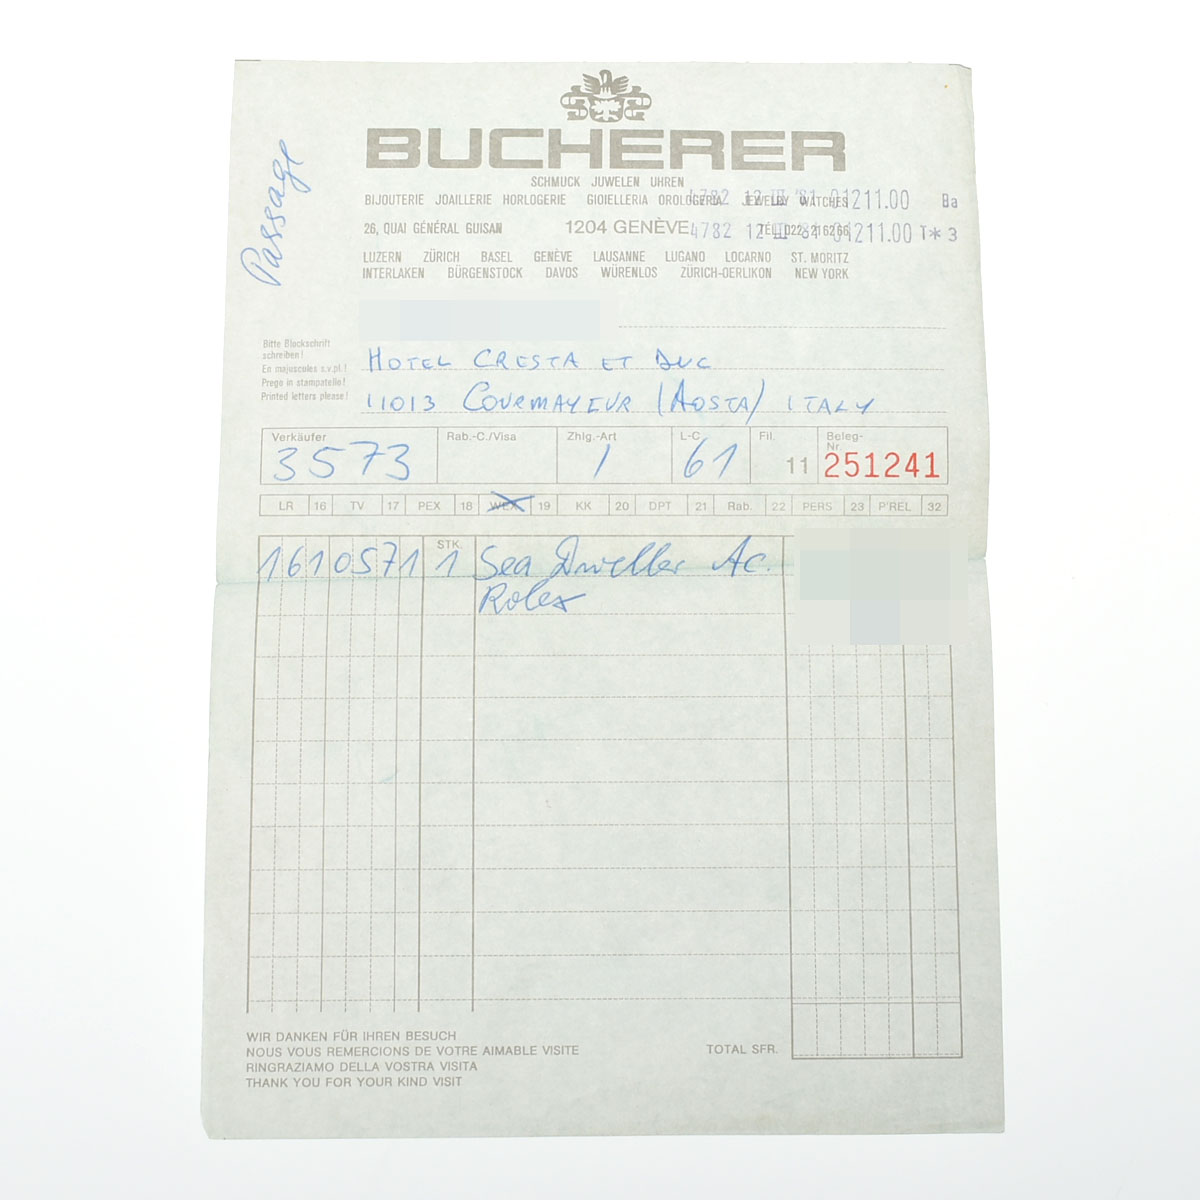 BUCHERER
Passage
SCHMUCK JUWELEN UHREN
BIJOUTERIE JOAILLERIE HORLOGERIE GIOIELLERIA OROLOGERIA JEWELRY WATCHES
4782 12 III '81 01211.00 Ba
26, QUAI GÉNÉRAL GUISAN 1204 GENÈVE TÉL. 022-216266
4782 12 III '81 01211.00 T* 3
LUZERN ZÜRICH BASEL GENÈVE LAUSANNE LUGANO LOCARNO ST. MORITZ
INTERLAKEN BÜRGENSTOCK DAVOS WÜRENLOS ZÜRICH-OERLIKON NEW YORK
Bitte Blockschrift
schreiben!
En majuscules s.v.pl.!
Prego in stampatello!
Printed letters please!
HOTEL CRESTA ET DUC
11013 COURMAYEUR (AOSTA) ITALY
Verkäufer Rab.-C./Visa Zhlg.-Art L-C Fil. Beleg-
Nr.
3573 1 61 11 251241
LR 16 TV 17 PEX 18 WEX 19 KK 20 DPT 21 Rab. 22 PERS 23 P'REL 32
STK.
1610571 1 Sea Dweller Ac.
Rolex
WIR DANKEN FÜR IHREN BESUCH
NOUS VOUS REMERCIONS DE VOTRE AIMABLE VISITE TOTAL SFR.
RINGRAZIAMO DELLA VOSTRA VISITA
THANK YOU FOR YOUR KIND VISIT